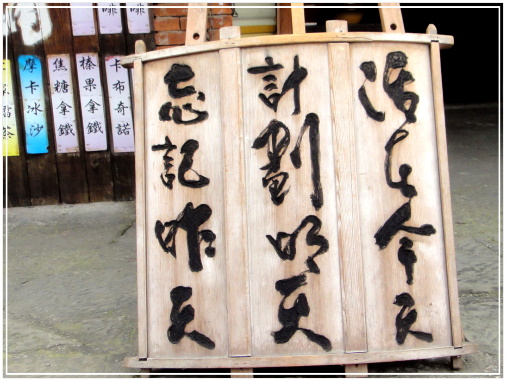 活在今天
計劃明天
忘記昨天
卡布奇諾
榛果拿鐵
焦糖拿鐵
摩卡冰沙